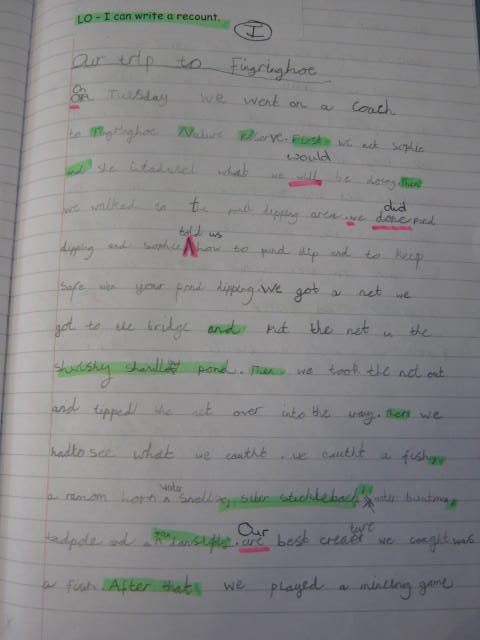 LO - I can write a recount.
I
Our trip to Fingringhoe
On
On Tuesday we went on a coach
to Fingringhoe Nature Reserve. First we met sophie
would
and she intaduced what we will be doing. Then
we walked to the pond dipping area. we did done pond
told us
dipping and sophie how to pond dip and to keep
safe wen your pond dipping. We got a net we
got to the bridge and put the net in the
pond. Then we took the net out
and tipped the net over into the tray. Then we
had to see what we caught. we caught a fish,
a ramon horn snail, silber stickleback, water boatman,
tadpole and a. Our are best creature we caught was
a fish. After that we played a minibeng game